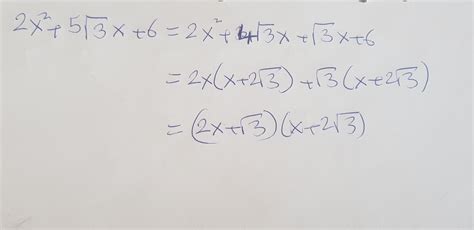 2x²+5√3x+6 = 2x²+4√3x+√3x+6
= 2x(x+2√3)+√3(x+2√3)
= (2x+√3)(x+2√3)